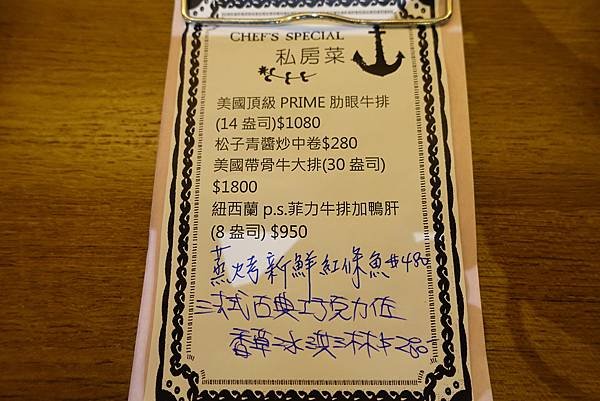 CHEF'S SPECIAL
私房菜
美國頂級 PRIME 肋眼牛排
(14 盎司)$1080
松子青醬炒中卷$280
美國帶骨牛大排(30 盎司)
$1800
紐西蘭 p.s.菲力牛排加鴨肝
(8 盎司) $950
蒸烤新鮮紅條魚$480
古典巧克力佐
香草冰淇淋 280